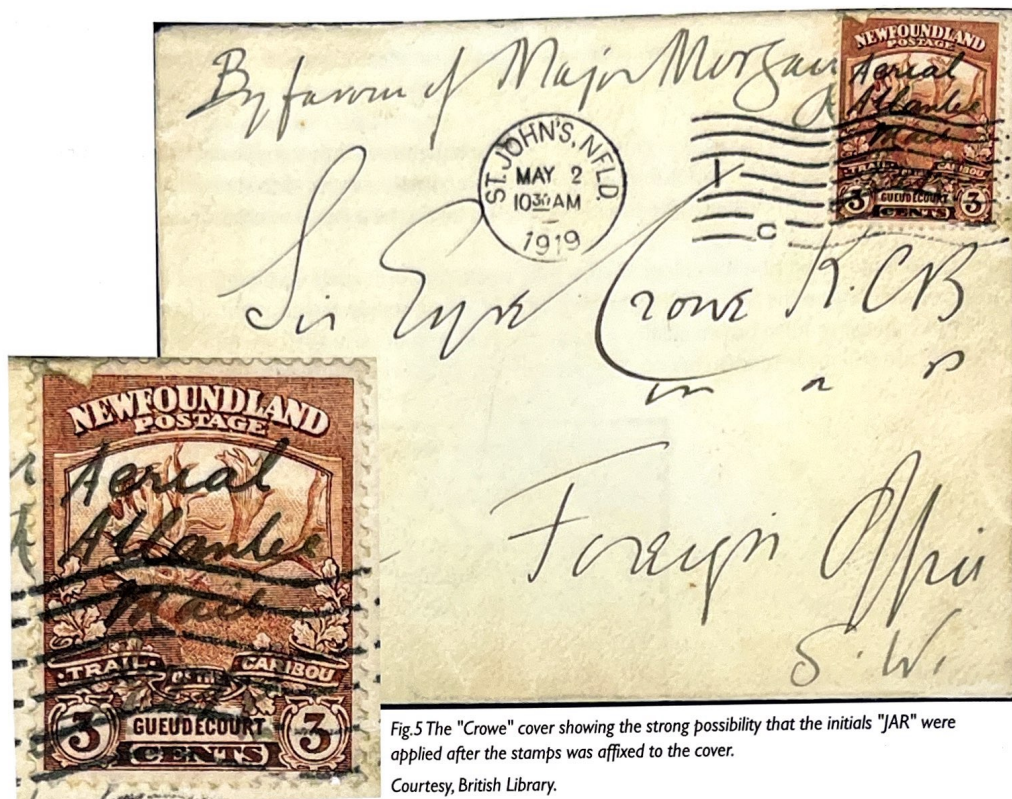 By favour of Major Morgan
NEWFOUNDLAND
POSTAGE
Aerial
Atlantic
Mail
3 GUEUDECOURT 3
CENTS
ST. JOHN'S, NFLD.
MAY 2
10 30 AM
1919
1
C
Sir Eyre Crowe K.C.B
Foreign Office
S.W.
NEWFOUNDLAND
POSTAGE
Aerial
Atlantic
Mail
TRAIL OF THE CARIBOU
3 GUEUDECOURT 3
CENTS
Fig.5 The "Crowe" cover showing the strong possibility that the initials "JAR" were
applied after the stamps was affixed to the cover.
Courtesy, British Library.